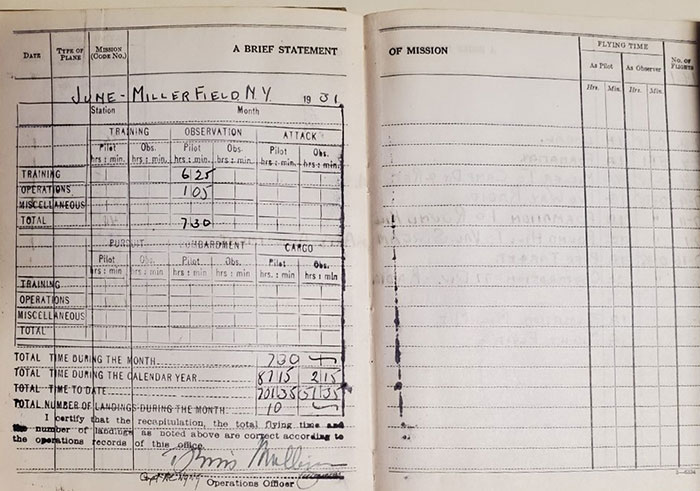 DATE TYPE OF PLANE MISSION (CODE NO.) A BRIEF STATEMENT OF MISSION FLYING TIME NO. OF FLIGHTS
As Pilot As Observer
Hrs. Min. Hrs. Min.
JUNE - MILLER FIELD, N.Y. 1931
Station Month
TRAINING OBSERVATION ATTACK
Pilot Obs. Pilot Obs. Pilot Obs.
hrs : min. hrs : min. hrs : min. hrs : min. hrs : min. hrs : min.
TRAINING 6 25
OPERATIONS 1 05
MISCELLANEOUS
TOTAL 7 30
PURSUIT BOMBARDMENT CARGO
Pilot Obs. Pilot Obs. Pilot Obs.
hrs : min hrs : min. hrs : min. hrs : min. hrs : min hrs : min
TRAINING
OPERATIONS
MISCELLANEOUS
TOTAL
TOTAL TIME DURING THE MONTH 7 30
TOTAL TIME DURING THE CALENDAR YEAR 87 15 2 15
TOTAL TIME TO DATE 701 35 51 35
TOTAL NUMBER OF LANDINGS DURING THE MONTH 10
I certify that the recapitulation, the total flying time and
the number of landings as noted above are correct according to
the operations records of this office.
Dennis Mulligan
Operations Officer